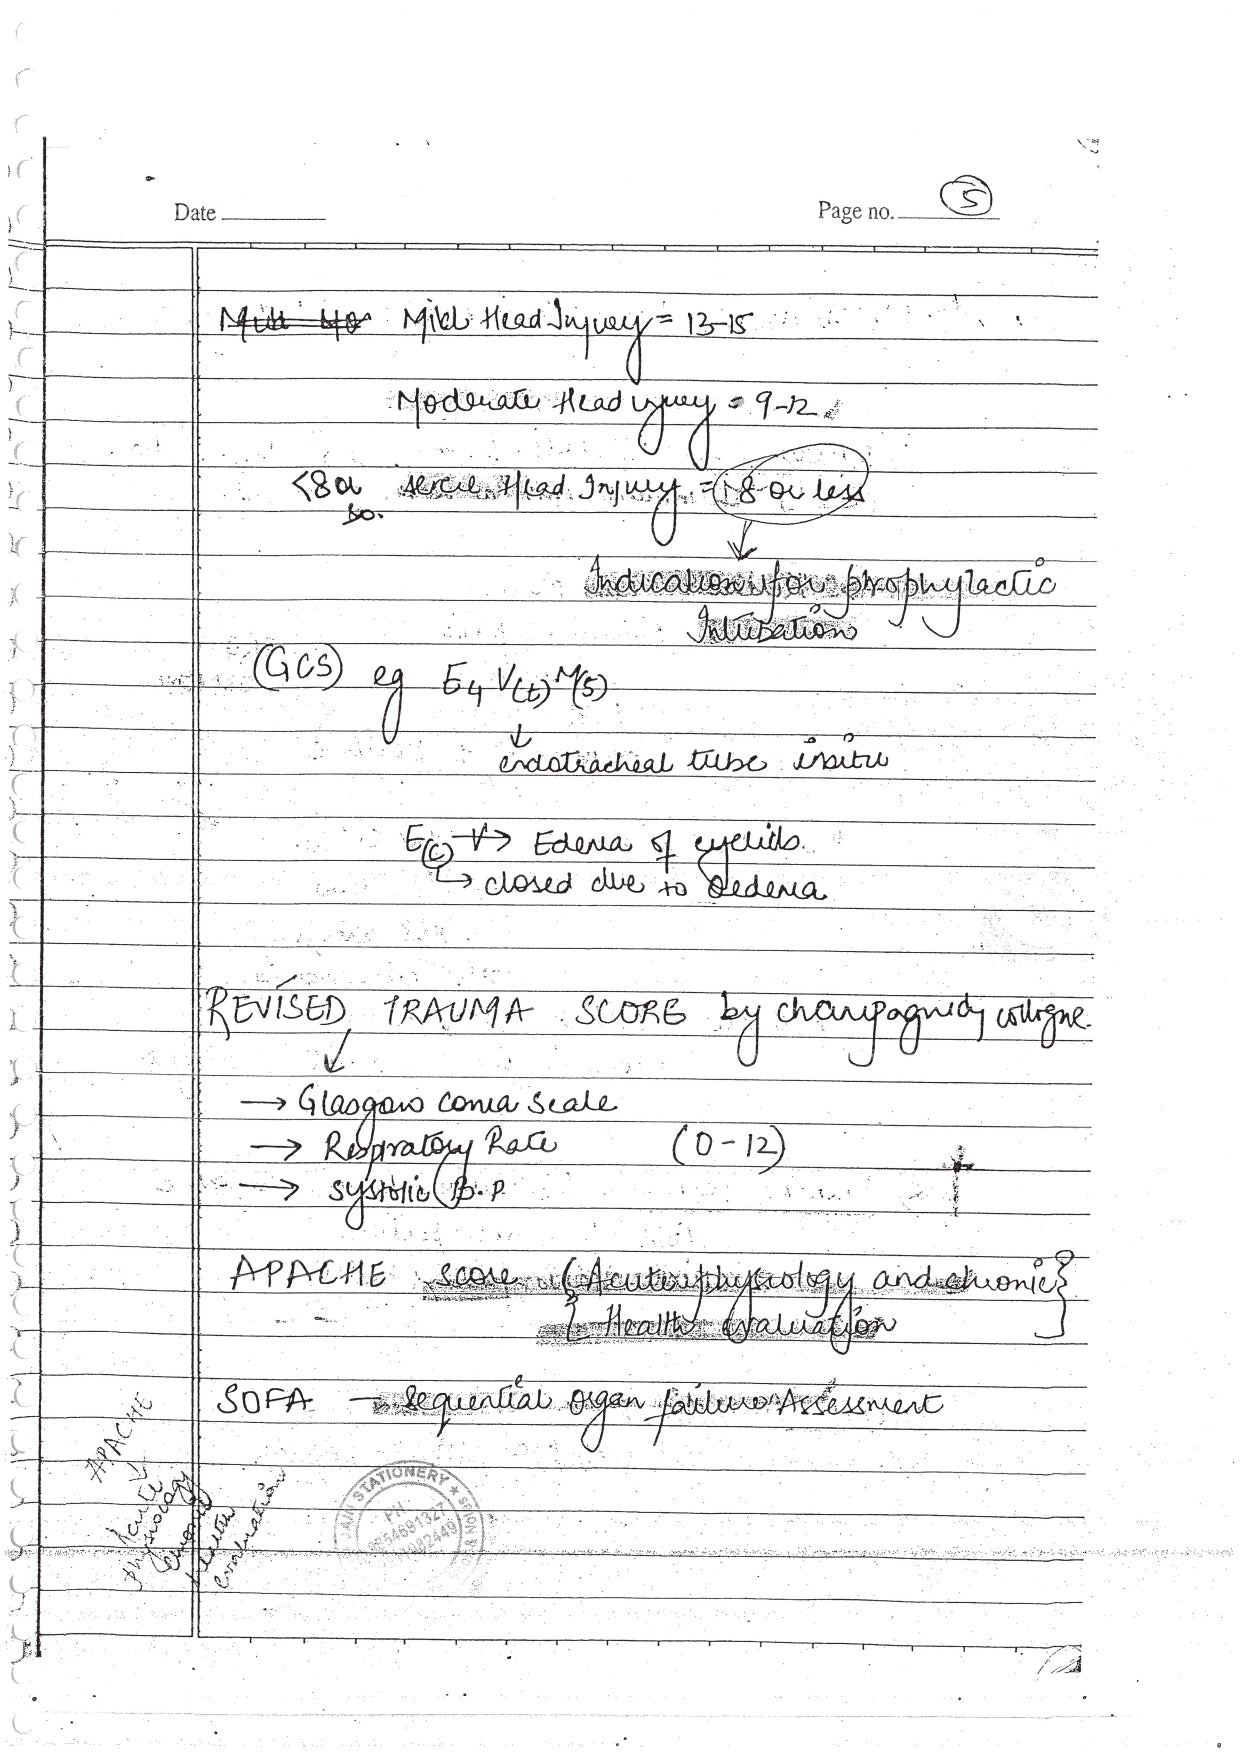 Date
Page no. 5
Mild Head Injury = 13-15
Moderate Head injury = 9-12
<8 or so. severe Head Injury = 8 or less
↓
Indication for prophylactic
Intubation
(GCS) eg E4 V(t) M(5)
↓
endotracheal tube insitu
E(c) → Edema of eyelids.
↳ closed due to Oedema
REVISED TRAUMA SCORE by
↓
→ Glasgow coma scale
→ Respiratory Rate (0-12)
→ systolic B.P.
APACHE score {Acute physiology and chronic}
{Health Evaluation}
SOFA → Sequential organ failure Assessment
APACHE
↓
Acute
physiology
Health
Evaluation
JAIN STATIONERY ★
PH.